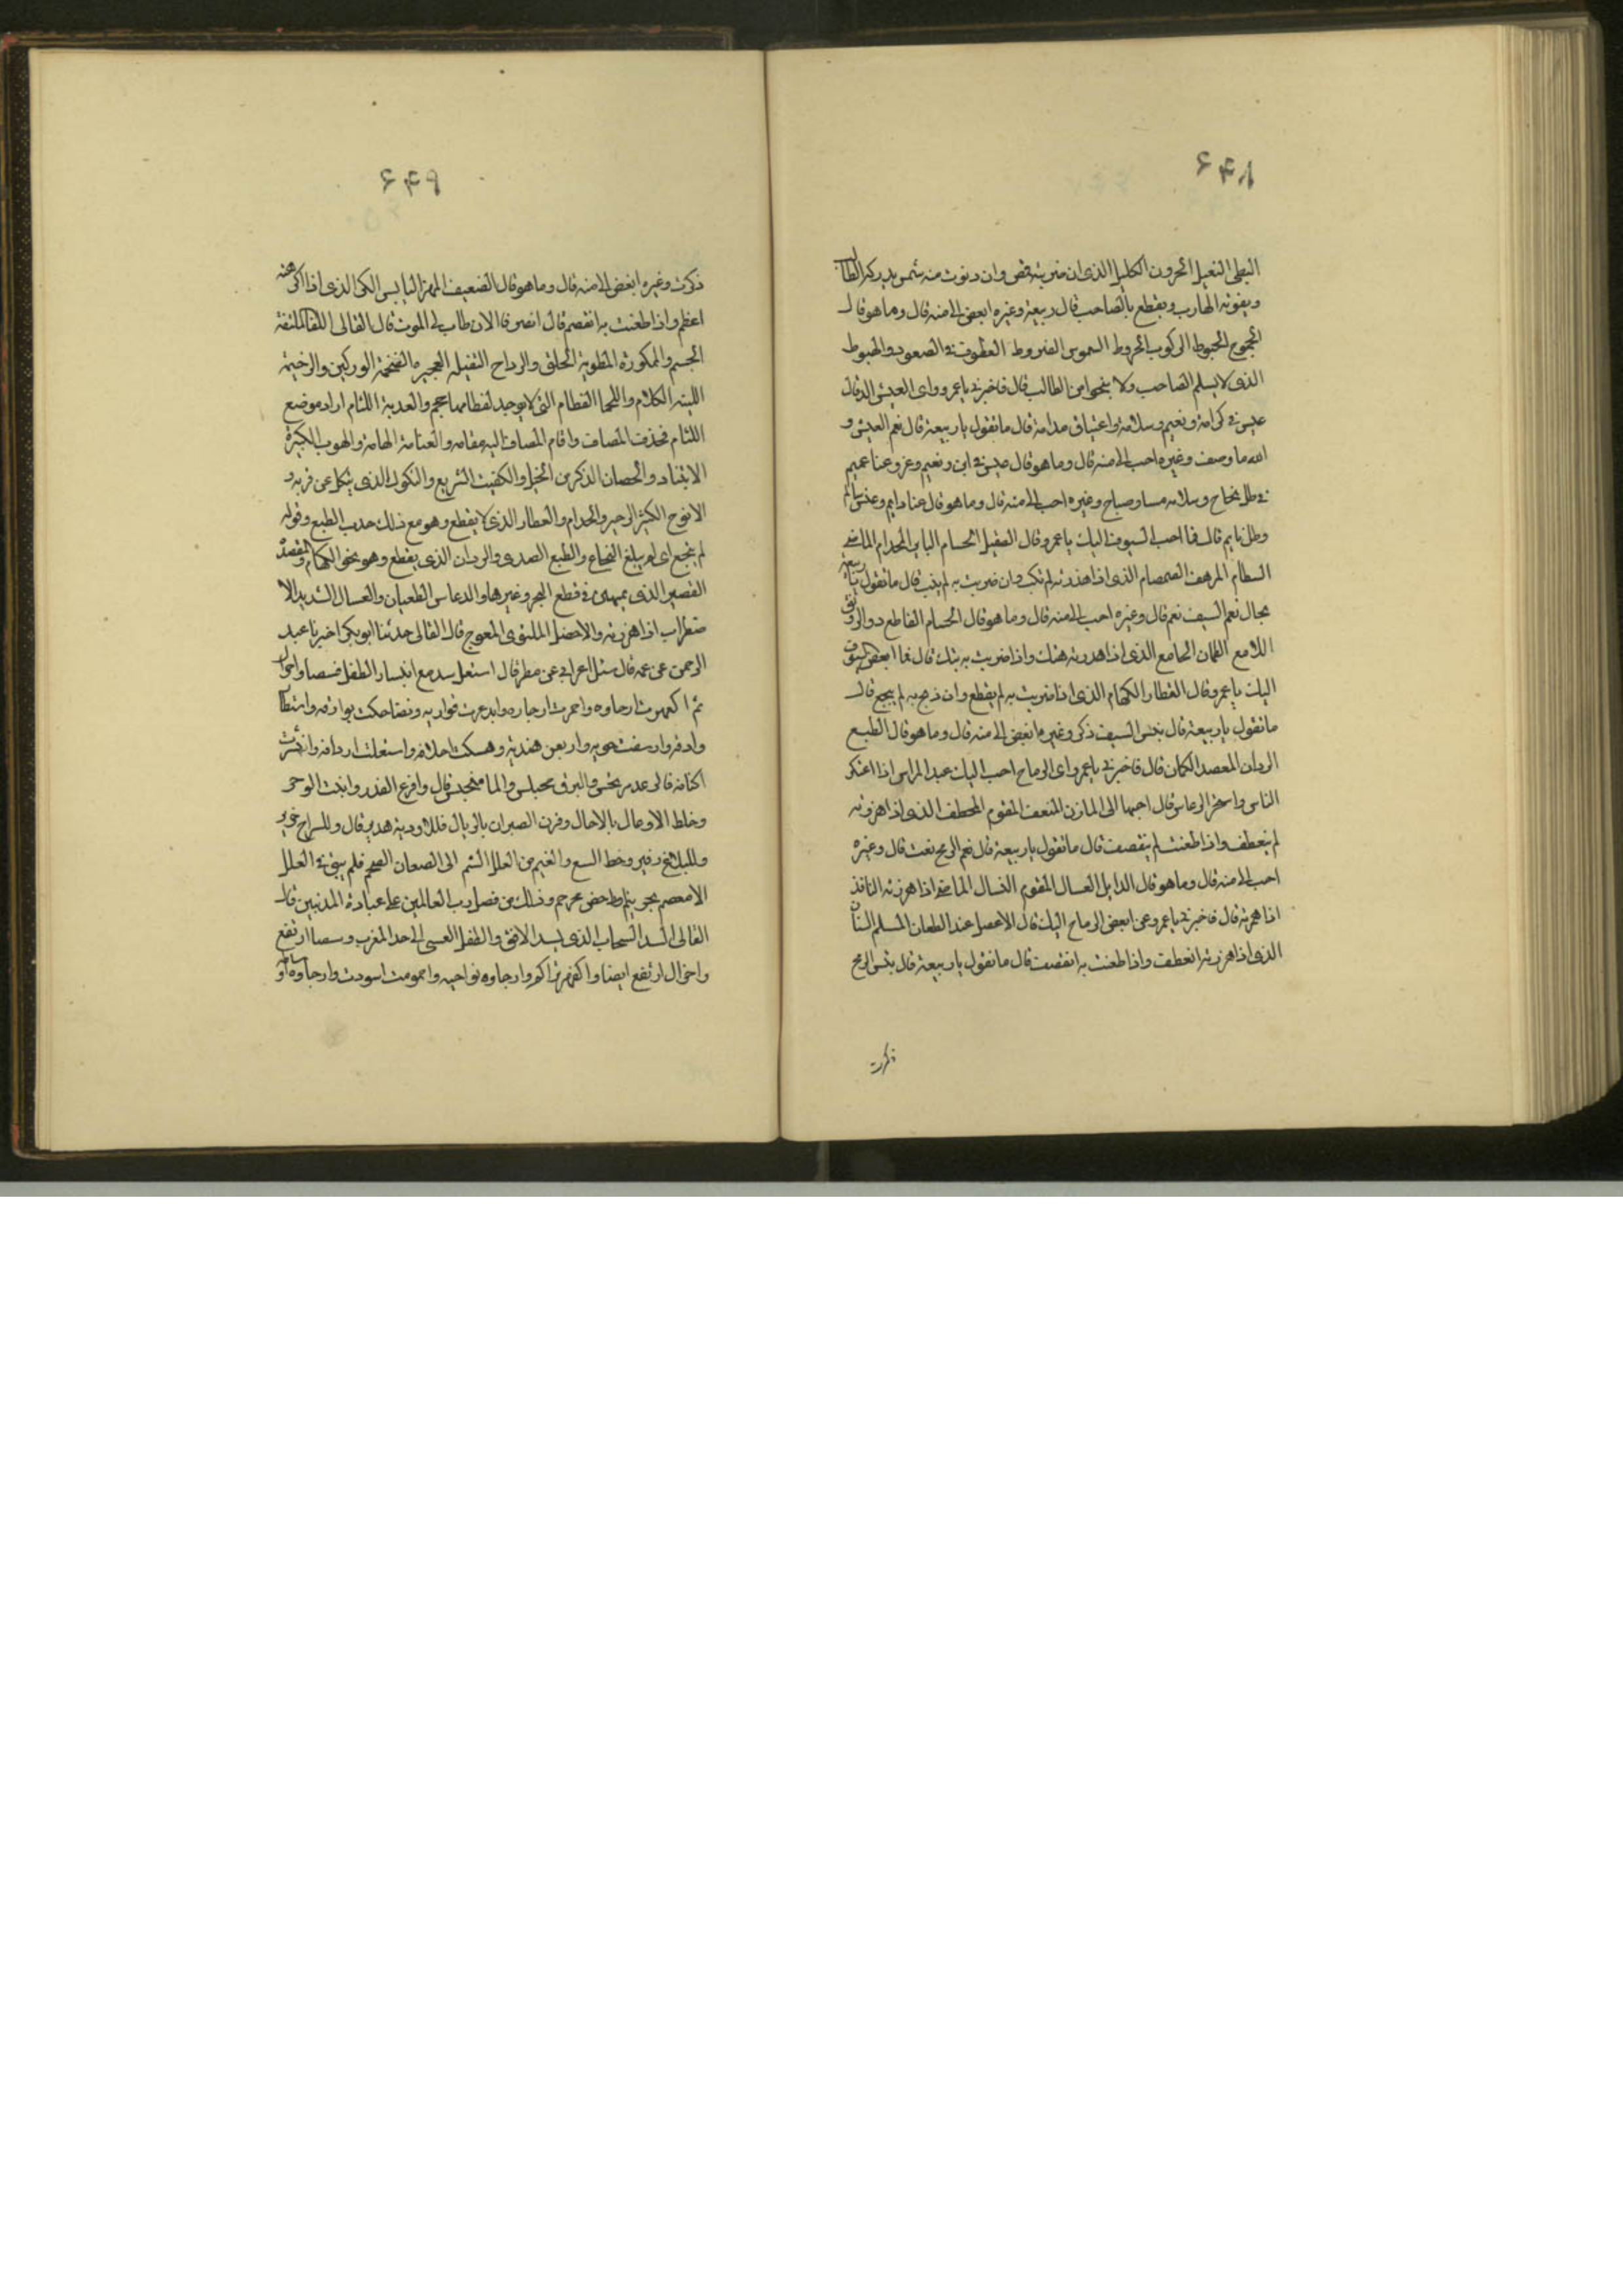 ۶۴۸
البطى الثقيل الحرون الكليل الذى ان ضربته قمص وان دنوت منه شمس يدركه الطالب
ويفوته الهارب ويقطع بالصاحب قال ربيعة وغيره ابغض الى منه قال وما هو قال
الجموح الخبوط الركوب الخروط الشموس الضروط القطوف فى الصعود والهبوط
الذى لا يسلم الصاحب ولا ينجو من الطالب قال فاخبرنى يا عمرو واى العيش الذ قال
عيش فى كرامة ونعيم وسلامة واغتباق مدامة قال ما تقول يا ربيعة قال نعم العيش و
الله ما وصف وغيره احب الى منه قال وما هو قال عيش فى امن ونعيم وعز وغنا عميم
فى ظل نجاح وسلامه مسا وصباح وغيره احب الى منه قال وما هو قال غنا دايم وعيش سالم
وظل نايم قال فما احب السيوف اليك يا عمرو قال الصقيل الحسام الباتر المجذام الماضى
السطام المرهف الصمصام الذى اذا هززته لم يكب وان ضربت به لم ينب قال ما تقول يا ربيعه
بحال نعم السيف نعم قال وغيره احب الى منه قال وما هو قال الحسام القاطع ذو الرونق
اللامع الظمان الجامع الذى اذا هززته هتك واذا ضربت به بتك قال فما ابغض السيوف
اليك يا عمرو قال الفطار الكهام الذى اذا ضربت به لم يقطع وان ذبح به لم ينجع قال
ما تقول يا ربيعة قال بئس السيف ذكر وغيره ابغض الى منه قال وما هو قال الطبع
الددان المعضد الكمان قال فاخبرنى يا عمرو اى الرماح احب اليك عند المراس اذا اعتكر
الناس واشتجر الدعاس قال احبها الى المازن المثقف المقوم المخطف الذى اذا هززته
لم ينعطف واذا طعنت لم ينقصف قال ما تقول يا ربيعة قال نعم الرمح نعت قال وغيره
احب الى منه قال وما هو قال الذابل العسال المقوم النسال الماضى اذا هززته النافذ
اذا همزته قال فاخبرنى يا عمرو عن ابغض الرماح اليك قال الاعصل عند الطعان المسلم السنان
الذى اذا هززته انعطف واذا طعنت به انقصف قال ما تقول يا ربيعة قال بئس الرمح
ذكرت
۶۴۹
ذكرت وغيره ابغض الى منه قال وما هو قال الضعيف المهز اليابس الكز الذى اذا اكرهته
اعظم واذا طعنت به انقصم قال انصرفا الان طاب لى الموت قال القالى اللفا الملتفة
الجسم والممكورة المطوية الخلق والرداح الثقيلة العجيزه الضخمة الوركين والرخيمه
اللينه الكلام
اللثام فحذف المضاف واقام المضاف اليه مقامه
والحصان الذكر من الخيل والكفيت السريع والنكول الذى ينكل عن قربه و
الانوح الكثير الزحير والجذام والفطار الذى لا يقطع وهو مع ذلك حديث الطبع وقوله
لم ينجع اى لم يبلغ النجاع والطبع الصدى والددان الذى يقطع وهو نحو الكهام والمعضد
القصير الذى يمتهن فى قطع الشجر وغيرها والدعاس الطعيان والعسال الشديد الا
ضطراب اذا هززته والاعصل الملتوى المعوج قال القالى حدثنا ابو بكر اخبرنا عبد
الرحمن عن عمه قال سئل اعرابى عن مطر قال استقل سد مع انتشار الطفل فشصا واحزال
ثم اكفهرت ارجاوه واحمومت ارحاوه وابذعرت فوارقه وتضاحكت بوارقه واستطار
وادقه وارتسقت جوبه وارتعن هيدبه وحشكت اخلافه واستقلت اردافه وانتشرت
اكنافه فالرعد مرتجس والبرق مختلس والما منبجس قال واترع الغدر وانبث الوجر
وخلط الاوعال بالاجال وقرن الصيران بالريال فللاودية هدير قال وللشراج خرير
وللتلاع زفير وحط النبع والعتم من القلل الشم الى القيعان الصحم فلم يبق فى القلل
الا معصم مجرنثم او داحض مجرجم وذلك من فضل رب العالمين على عباده المذنبين قال
القالى السد السحاب الذى يسد الافق والطفل العشى الى حد المغرب وشصا ارتفع
واحزال ارتفع ايضا واكفهر تراكم وارجاوه نواحيه واحمومت اسودت وارحاوه اوساطه